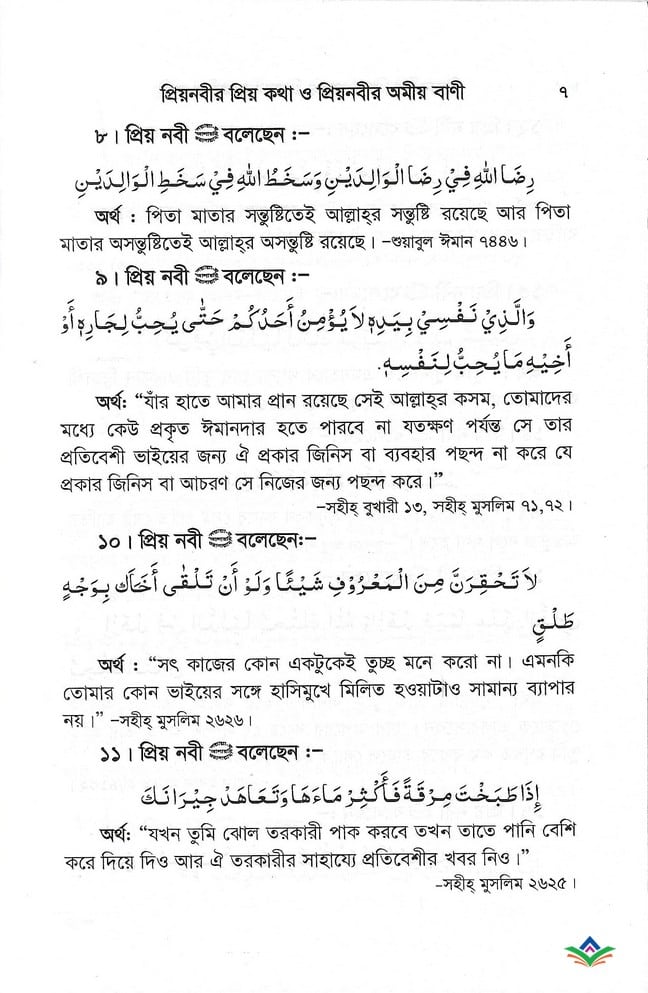 প্রিয়নবীর প্রিয় কথা ও প্রিয়নবীর অমীয় বাণী ৭
৮। প্রিয় নবী ﷺ বলেছেন :–
رِضَا اللهِ فِيْ رِضَا الْوَالِدَيْنِ وَسَخَطُ اللهِ فِيْ سَخَطِ الْوَالِدَيْنِ
অর্থ : পিতা মাতার সন্তুষ্টিতেই আল্লাহ্‌র সন্তুষ্টি রয়েছে আর পিতা
মাতার অসন্তুষ্টিতেই আল্লাহ্‌র অসন্তুষ্টি রয়েছে। –শুয়াবুল ঈমান ৭৪৪৬।
৯। প্রিয় নবী ﷺ বলেছেন :–
وَالَّذِيْ نَفْسِيْ بِيَدِهٖ لَا يُؤْمِنُ أَحَدُكُمْ حَتّٰى يُحِبُّ لِجَارِهٖ أَوْ
أَخِيْهِ مَا يُحِبُّ لِنَفْسِهٖ.
অর্থ: “যাঁর হাতে আমার প্রান রয়েছে সেই আল্লাহ্‌র কসম, তোমাদের
মধ্যে কেউ প্রকৃত ঈমানদার হতে পারবে না যতক্ষণ পর্যন্ত সে তার
প্রতিবেশী ভাইয়ের জন্য ঐ প্রকার জিনিস বা ব্যবহার পছন্দ না করে যে
প্রকার জিনিস বা আচরণ সে নিজের জন্য পছন্দ করে।”
–সহীহ্ বুখারী ১৩, সহীহ্ মুসলিম ৭১,৭২।
১০। প্রিয় নবী ﷺ বলেছেন:–
لَا تَحْقِرَنَّ مِنَ الْمَعْرُوْفِ شَيْئًا وَلَوْ أَنْ تَلْقٰى أَخَاكَ بِوَجْهٍ
طَلْقٍ
অর্থ : “সৎ কাজের কোন একটুকেই তুচ্ছ মনে করো না। এমনকি
তোমার কোন ভাইয়ের সঙ্গে হাসিমুখে মিলিত হওয়াটাও সামান্য ব্যাপার
নয়।” –সহীহ্ মুসলিম ২৬২৬।
১১। প্রিয় নবী ﷺ বলেছেন :–
إِذَا طَبَخْتَ مِرْقَةً فَأَكْثِرْ مَاءَهَا وَتَعَاهَدْ جِيْرَانَكَ
অর্থ: “যখন তুমি ঝোল তরকারী পাক করবে তখন তাতে পানি বেশি
করে দিয়ে দিও আর ঐ তরকারীর সাহায্যে প্রতিবেশীর খবর নিও।”
–সহীহ্ মুসলিম ২৬২৫।